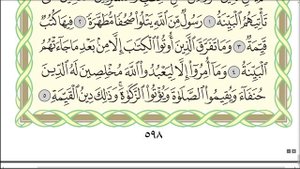 تَأْتِيَهُمُ ٱلْبَيِّنَةُ ١ رَسُولٌ مِّنَ ٱللَّهِ يَتْلُوا۟ صُحُفًا مُّطَهَّرَةً ٢ فِيهَا كُتُبٌ
قَيِّمَةٌ ٣ وَمَا تَفَرَّقَ ٱلَّذِينَ أُوتُوا۟ ٱلْكِتَٰبَ إِلَّا مِنۢ بَعْدِ مَا جَآءَتْهُمُ
ٱلْبَيِّنَةُ ٤ وَمَآ أُمِرُوٓا۟ إِلَّا لِيَعْبُدُوا۟ ٱللَّهَ مُخْلِصِينَ لَهُ ٱلدِّينَ
حُنَفَآءَ وَيُقِيمُوا۟ ٱلصَّلَوٰةَ وَيُؤْتُوا۟ ٱلزَّكَوٰةَ ۚ وَذَٰلِكَ دِينُ ٱلْقَيِّمَةِ ٥
٥٩٨